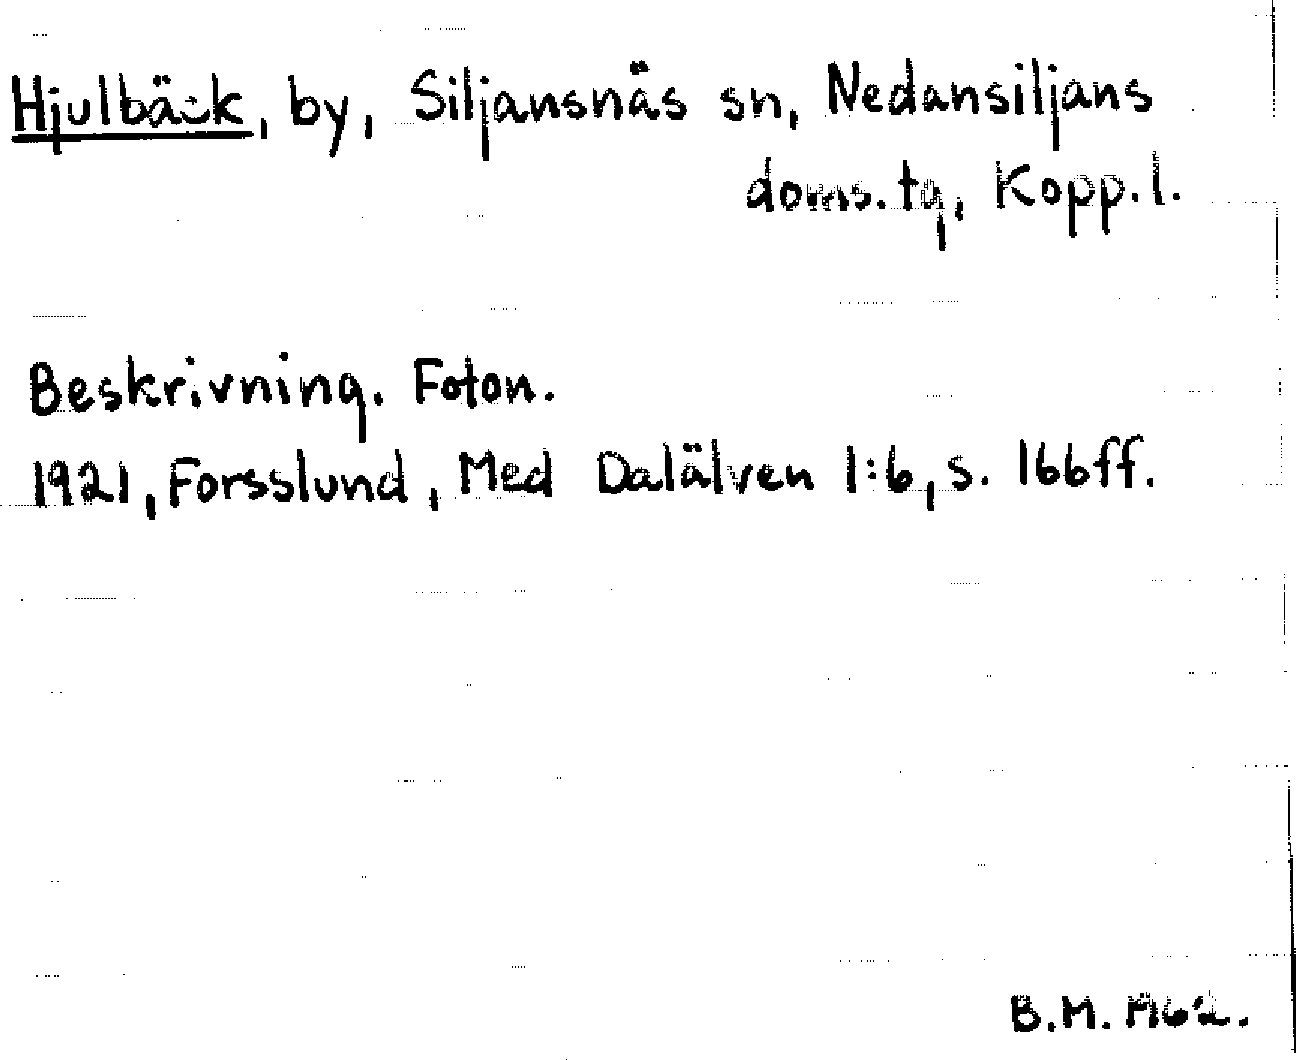 Hjulbäck, by, Siljansnäs sn, Nedansiljans
doms.tg, Kopp.l.
Beskrivning. Foton.
1921, Forsslund, Med Dalälven 1:6, s. 166ff.
B.M. 1962.